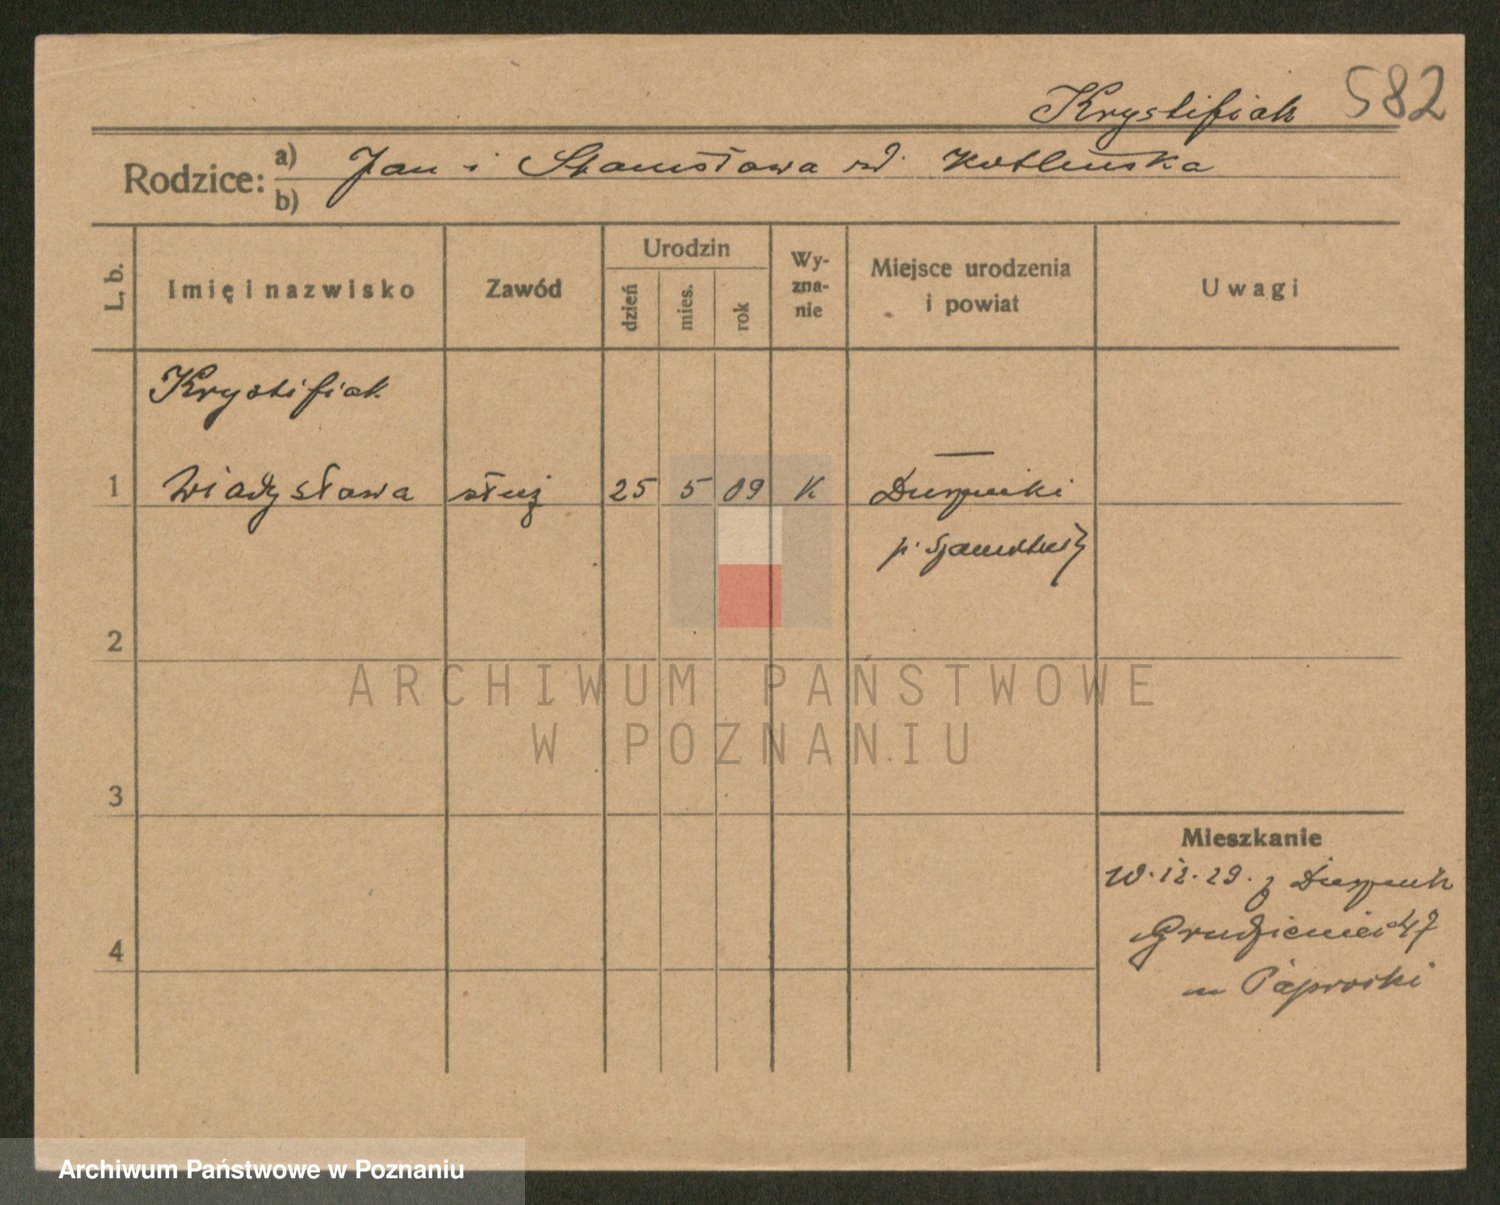 Krystifiak 582
Rodzice: a) b) Jan i Stanisława zd. Kotlińska
L. b. Imię i nazwisko Zawód Urodzin dzień mies. rok Wyznanie Miejsce urodzenia i powiat Uwagi
Krystifiak
1 Władysława służ 25 5 09 K Duszniki
p. Szamotuły
2
ARCHIWUM PAŃSTWOWE
W POZNANIU
3
Mieszkanie
10.12.29. z Dusznik
4 Grudzieniec 47
u Paproski
Archiwum Państwowe w Poznaniu